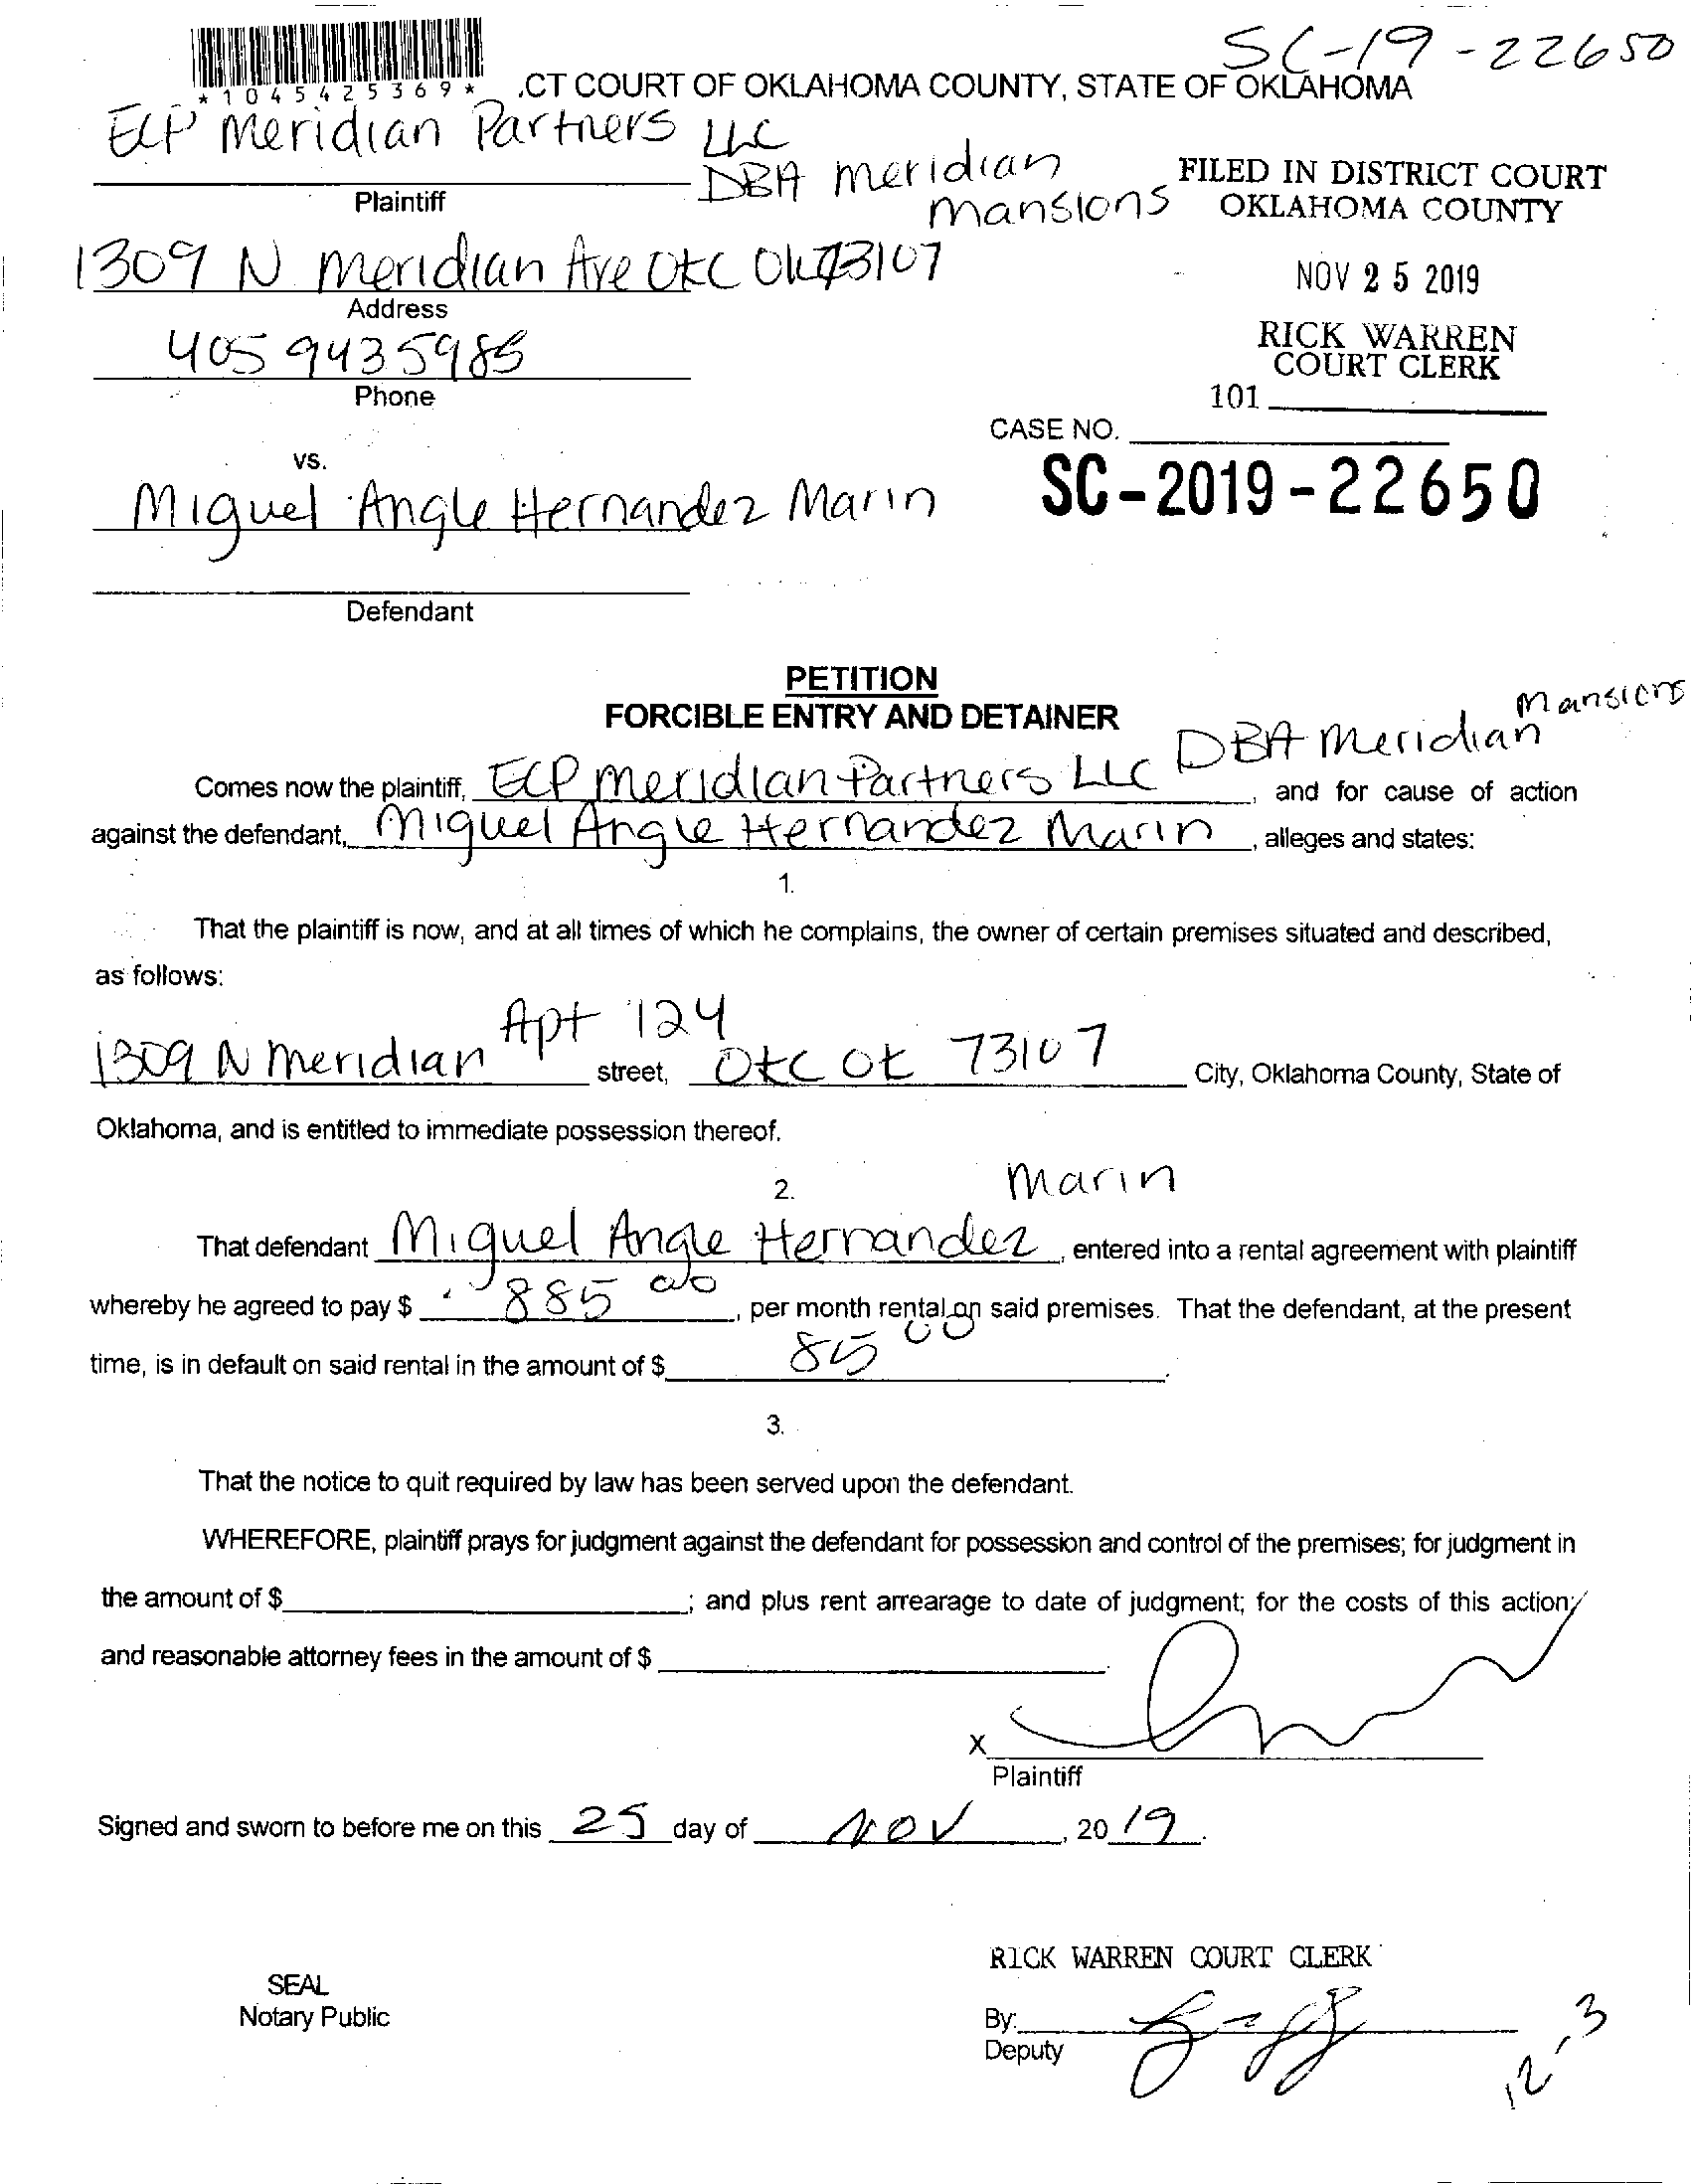 SC-19-22650
*1045425369*
.CT COURT OF OKLAHOMA COUNTY, STATE OF OKLAHOMA
ECP Meridian Partners LLC
DBA Meridian
Mansions
Plaintiff
FILED IN DISTRICT COURT
OKLAHOMA COUNTY
1309 N Meridian Ave OKC OK 73107
Address
NOV 25 2019
405 943 5985
Phone
RICK WARREN
COURT CLERK
101
CASE NO.
vs.
SC-2019-22650
Miguel Angle Hernandez Marin
Defendant
PETITION
FORCIBLE ENTRY AND DETAINER
Comes now the plaintiff, ECP Meridian Partners LLC DBA Meridian Mansions, and for cause of action
against the defendant, Miguel Angle Hernandez Marin, alleges and states:
1.
That the plaintiff is now, and at all times of which he complains, the owner of certain premises situated and described,
as follows:
1309 N Meridian Apt 124 street, OKC OK 73107 City, Oklahoma County, State of
Oklahoma, and is entitled to immediate possession thereof.
2.
That defendant Miguel Angle Hernandez Marin, entered into a rental agreement with plaintiff
whereby he agreed to pay $ 885 00, per month rental on said premises. That the defendant, at the present
time, is in default on said rental in the amount of $ 00.
3.
That the notice to quit required by law has been served upon the defendant.
WHEREFORE, plaintiff prays for judgment against the defendant for possession and control of the premises; for judgment in
the amount of $ ; and plus rent arrearage to date of judgment; for the costs of this action;
and reasonable attorney fees in the amount of $
X
Plaintiff
Signed and sworn to before me on this 25 day of NOV, 20 19.
RICK WARREN COURT CLERK
SEAL
Notary Public
By:
Deputy
12-3